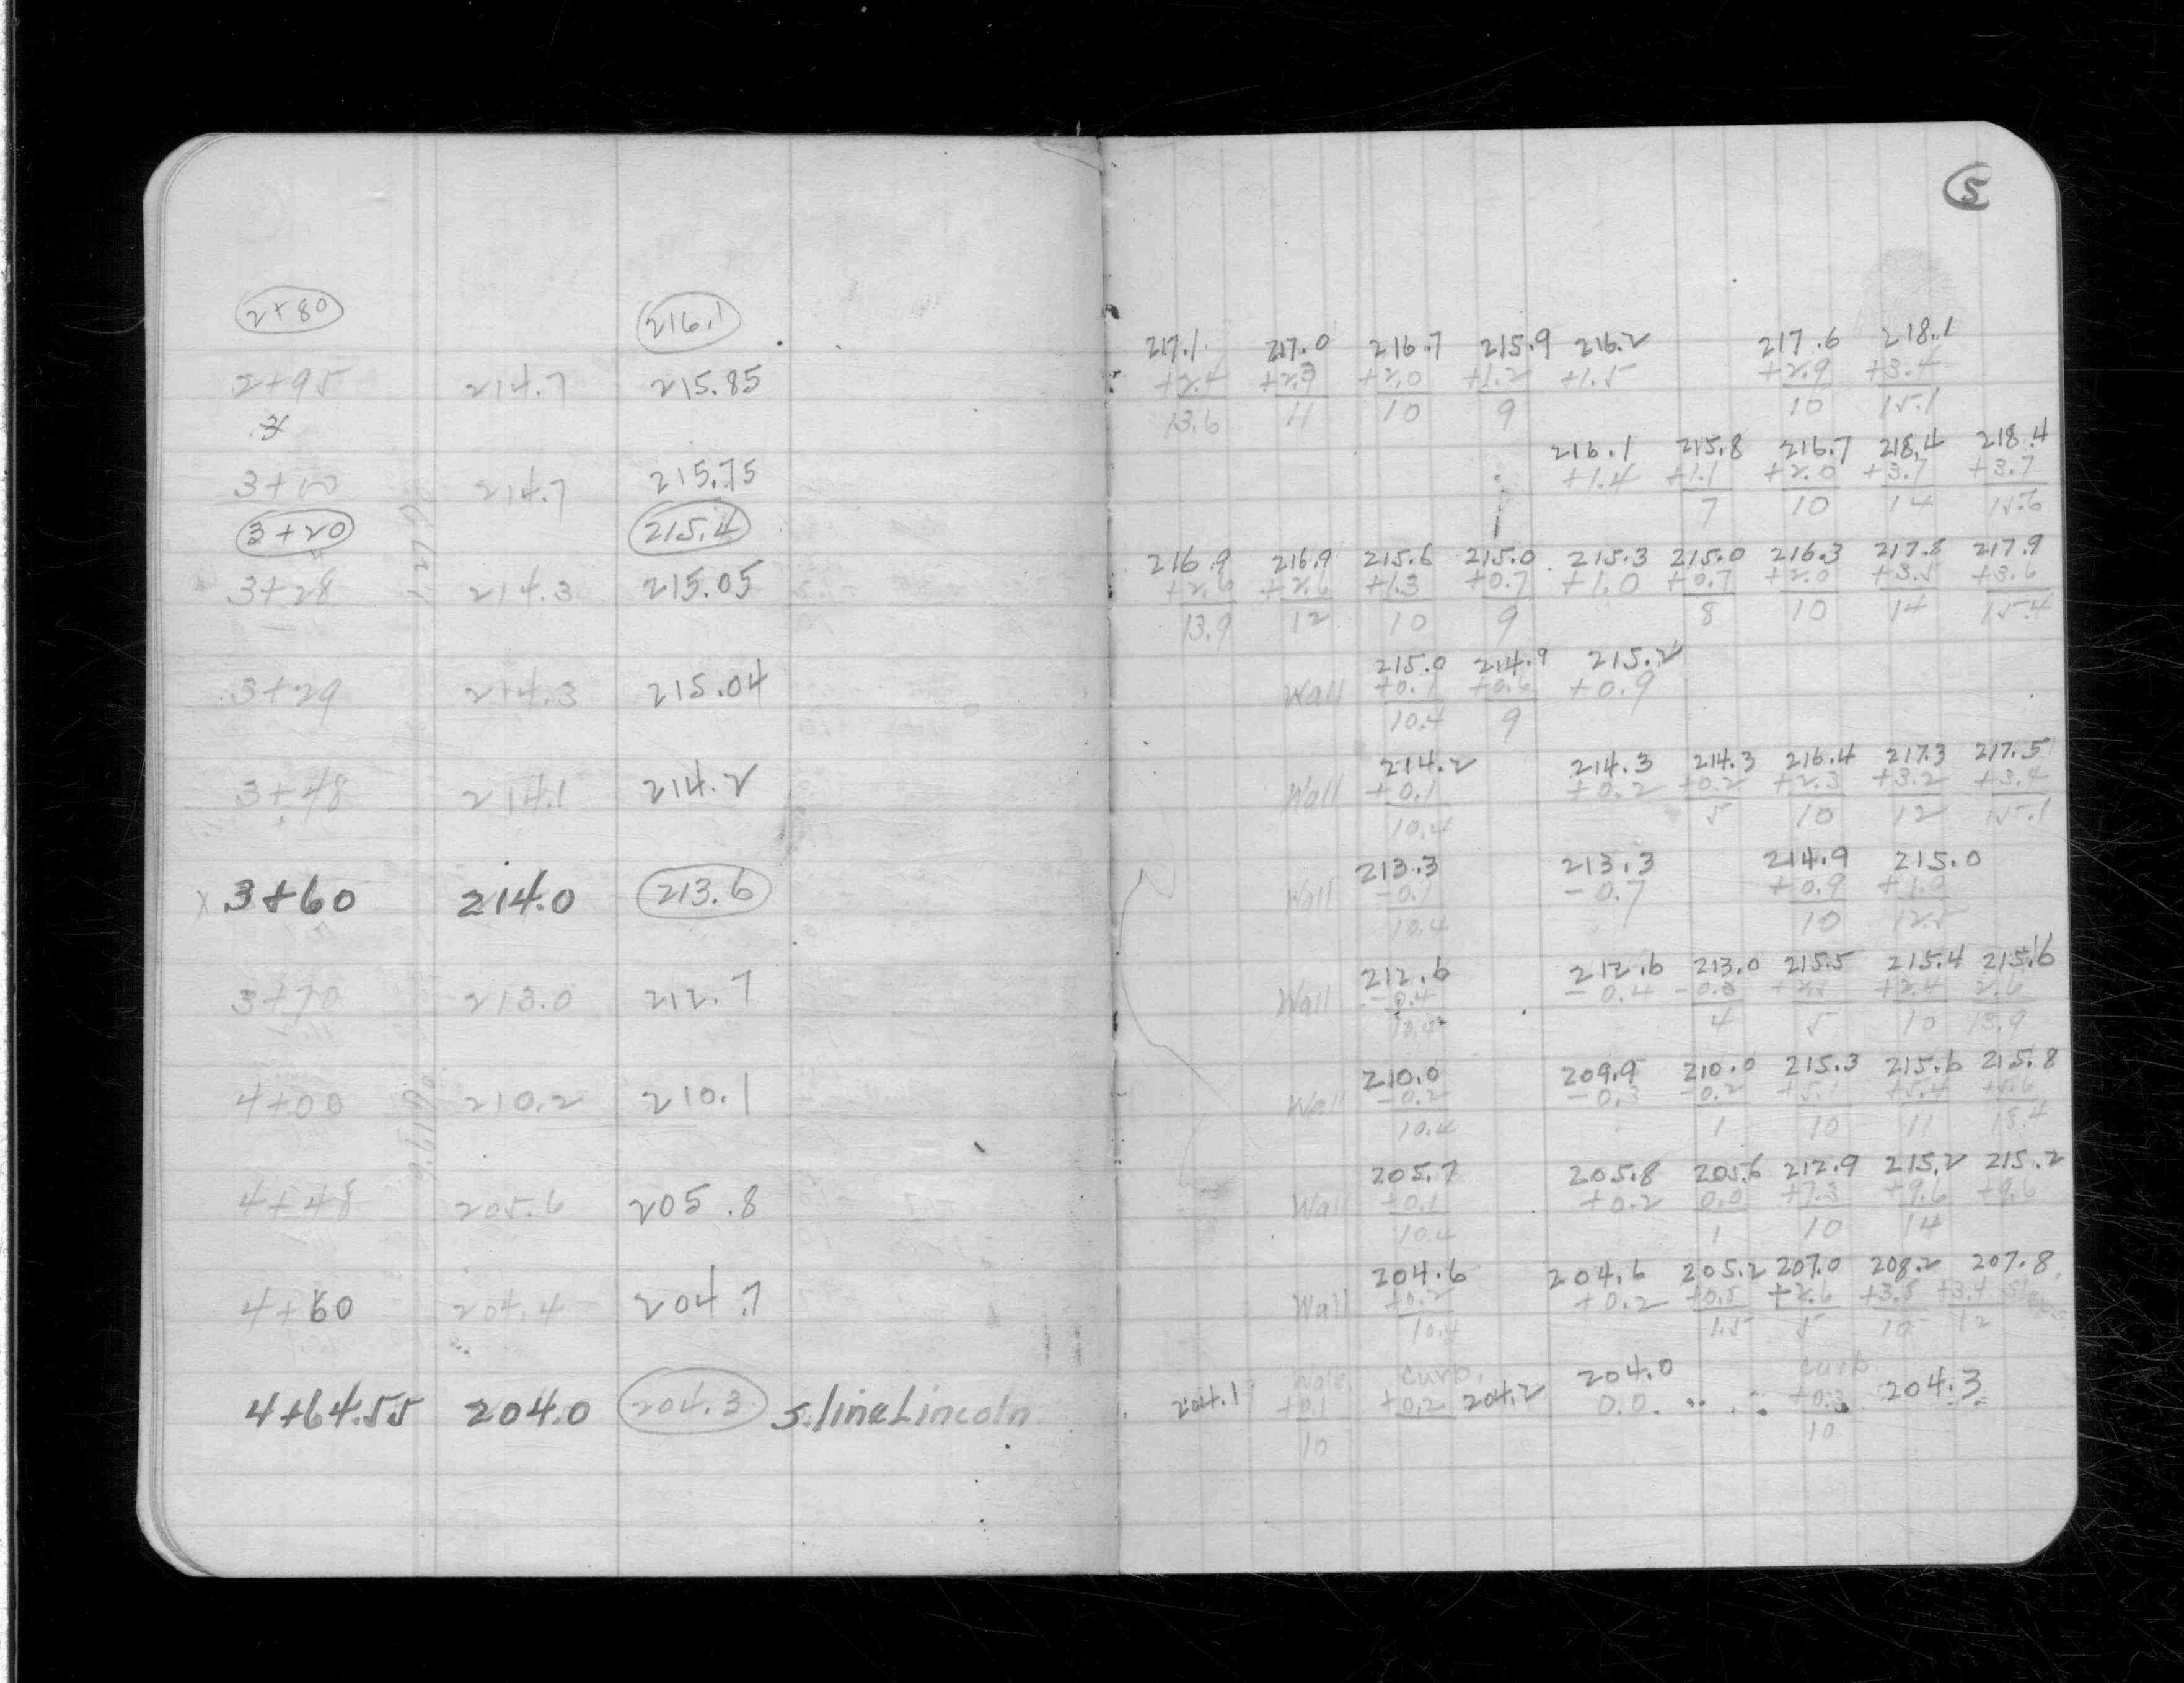 5
2+80 216.1
217.1 217.0 216.7 215.9 216.2 217.6 218.1
2+95 214.7 215.85 +2.4 +2.3 +2.0 +1.2 +1.5 +2.9 +3.4
13.6 11 10 9 10 15.1
216.1 215.8 216.7 218.4 218.4
3+10 214.7 215.75 +1.4 +1.1 +2.0 +3.7 +3.7
7 10 14 15.6
3+20 215.4
216.9 216.9 215.6 215.0 215.3 215.0 216.3 217.8 217.9
3+28 214.3 215.05 +2.6 +2.6 +1.3 +0.7 +1.0 +0.7 +2.0 +3.5 +3.6
13.9 12 10 9 8 10 14 15.4
215.0 214.9 215.2
3+29 214.3 215.04 Wall +0.1 +0.6 +0.9
10.4 9
214.2 214.3 214.3 216.4 217.3 217.5
3+48 214.1 214.2 Wall +0.1 +0.2 +0.2 +2.3 +3.2 +3.4
10.4 5 10 12 15.1
213.3 213.3 214.9 215.0
x 3+60 214.0 213.6 Wall -0.7 -0.7 +0.9 +1.0
10.4 10 12.5
212.6 212.6 213.0 215.5 215.4 215.6
3+70 213.0 212.7 Wall -0.4 -0.4 +2.5 +2.4 2.6
4 5 10 13.9
210.0 209.9 210.0 215.3 215.6 215.8
4+00 210.2 210.1 Wall -0.2 -0.3 -0.2 +5.1 +5.4 +5.6
10.4 1 10 11
205.7 205.8 205.6 212.9 215.2 215.2
4+48 205.6 205.8 Wall +0.1 +0.2 0.0 +7.3 +9.6 +9.6
10.4 1 10 14
204.6 204.6 205.2 207.0 208.2 207.8
4+60 204.4 204.7 Wall +0.2 +0.2 +0.5 +2.6 +3.5 +3.4 Steps
10.4 1.5 5 10 12
curb. 204.0 curb.
4+64.55 204.0 204.3 S. line Lincoln 204.1 +0.1 +0.2 204.2 0.0 +0.3 204.3
10 10